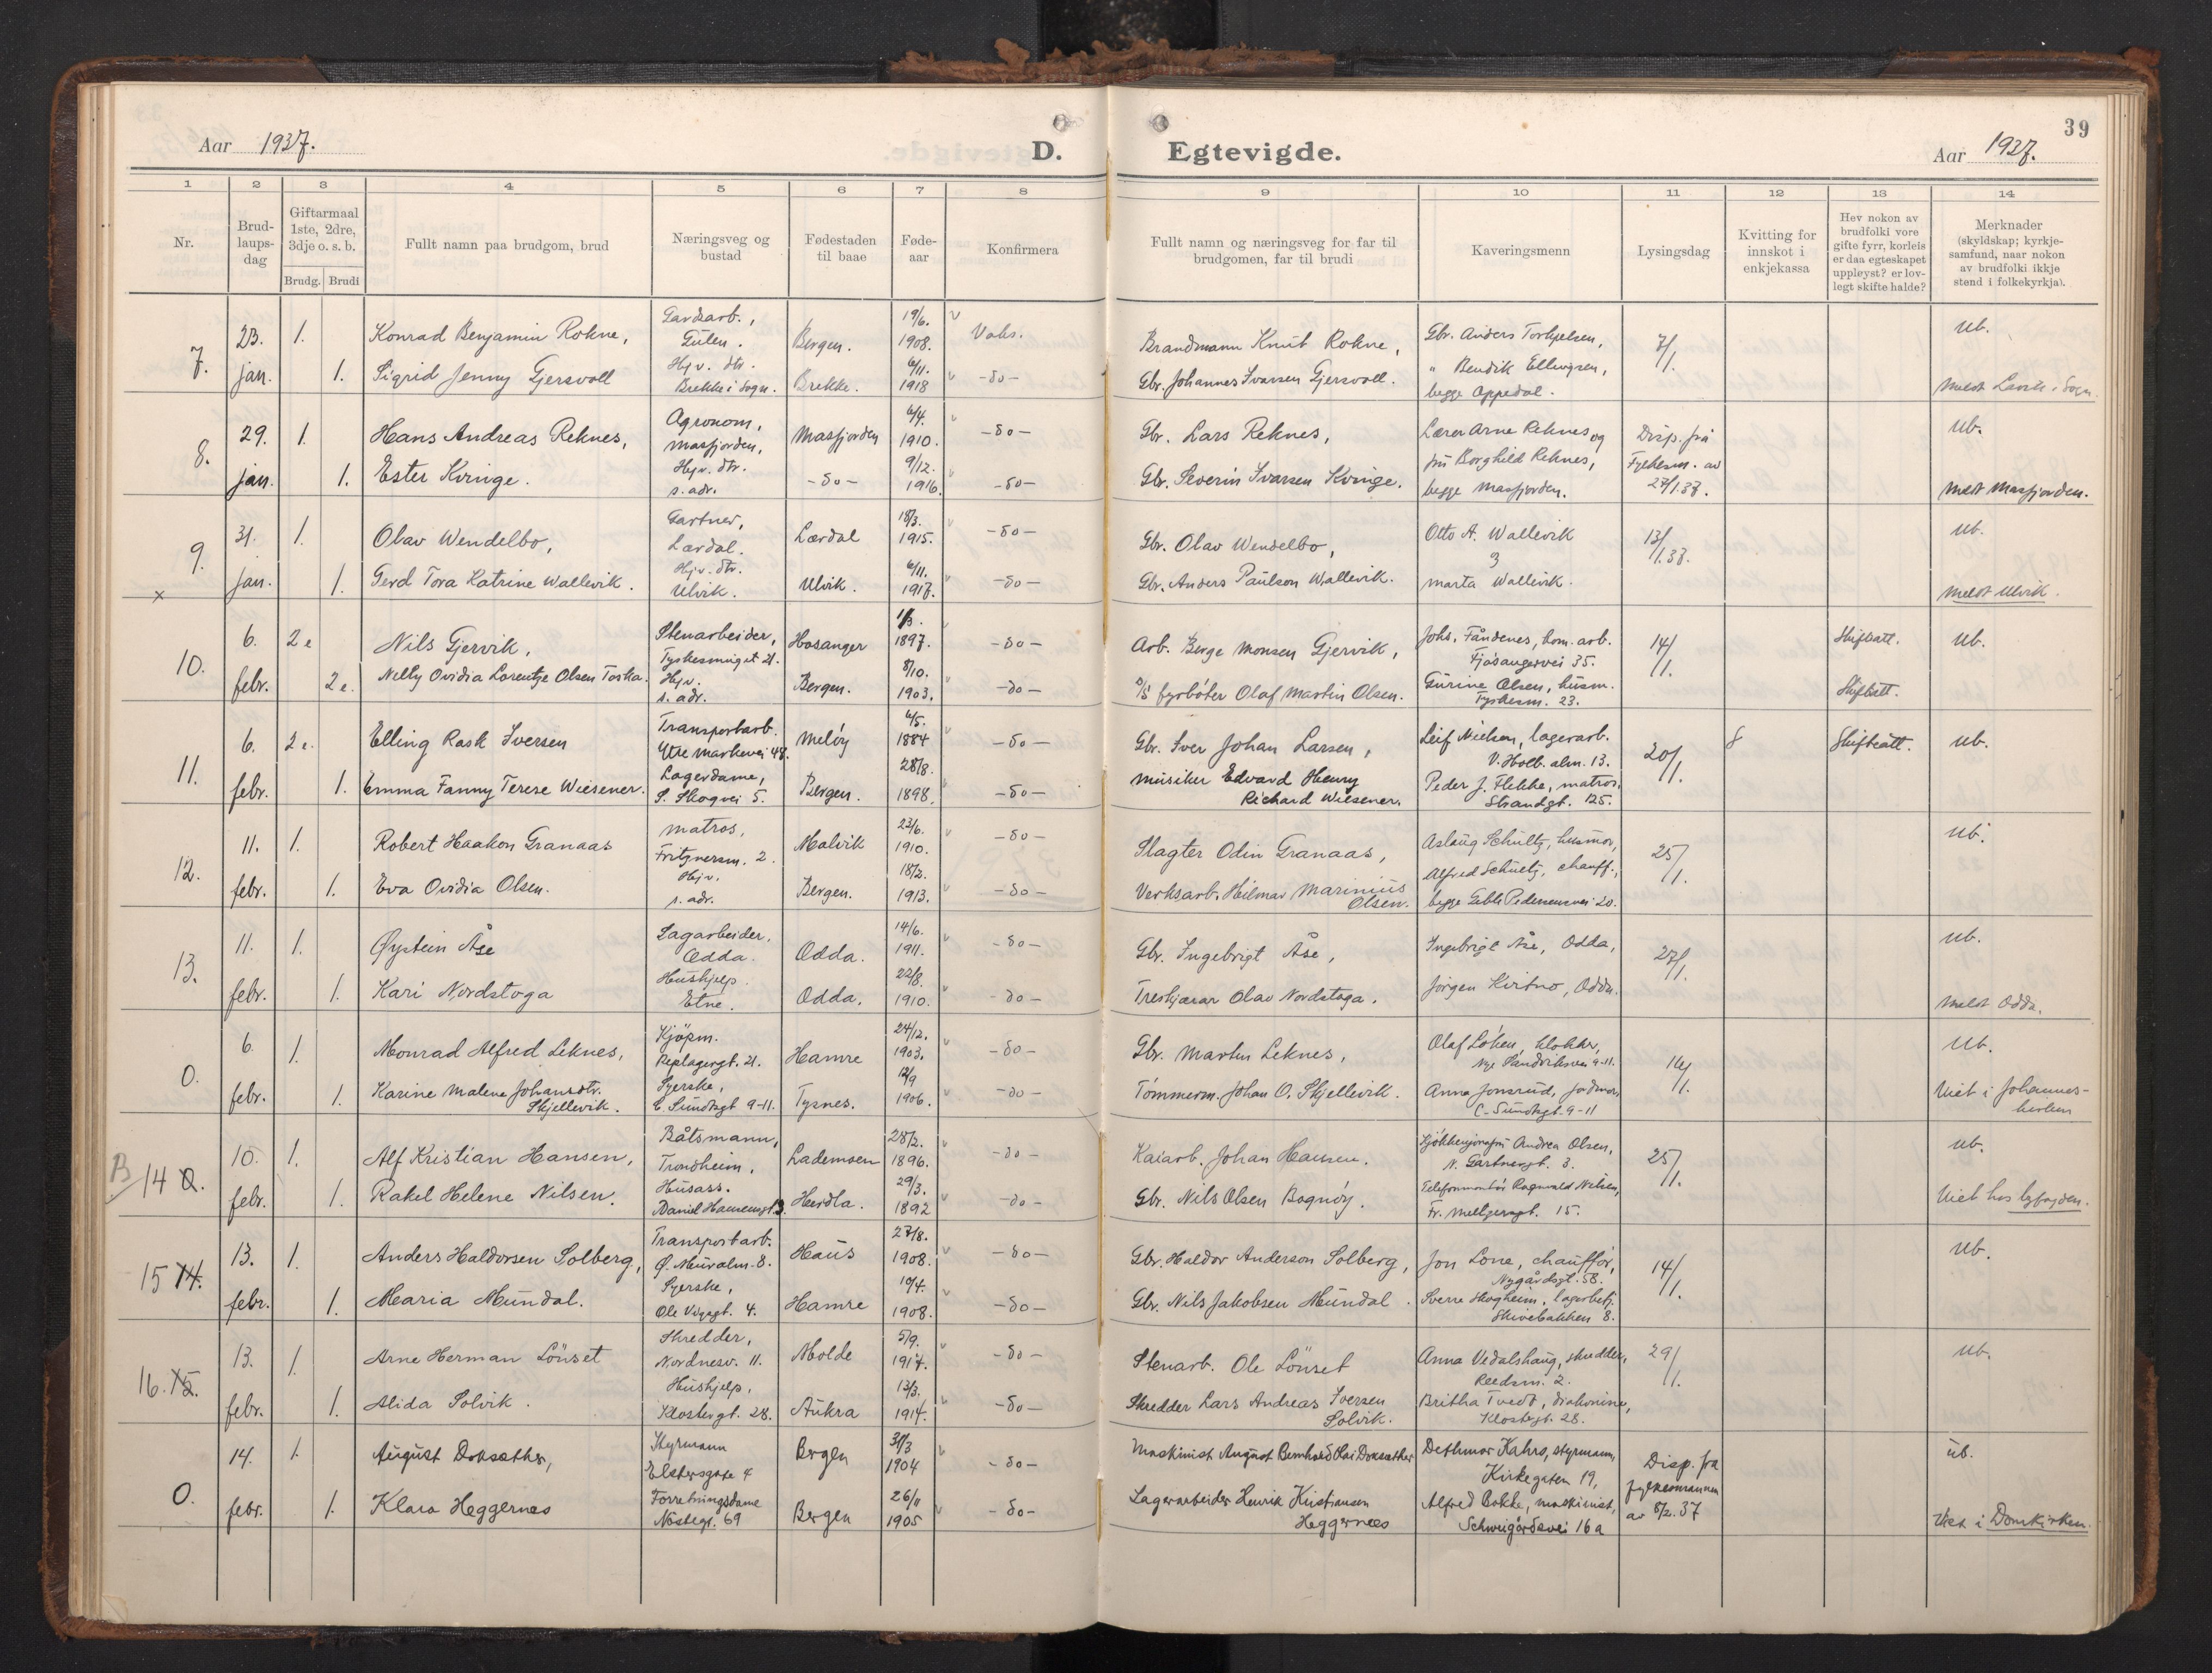 39
Aar 1937.
D.
Egtevigde.
Aar 1937.
1 2 3 4 5 6 7 8 9 10 11 12 13 14
Nr.
Brud-
laups-
dag
Giftarmaal
1ste, 2dre,
3dje o. s. b.
Brudg. Brudi
Fullt namn paa brudgom, brud
Næringsveg og
bustad
Fødestaden
til baae
Føde-
aar
Konfirmera
Fullt namn og næringsveg for far til
brudgomen, far til brudi
Kaveringsmenn
Lysingsdag
Kvitting for
innskot i
enkjekassa
Hev nokon av
brudfolki vore
gifte fyrr, korleis
er daa egteskapet
uppløyst? er lov-
legt skifte halde?
Merknader
(skyldskap; kyrkje-
samfund, naar nokon
av brudfolki ikkje
stend i folkekyrkja).
7.
23. 1. Konrad Benjamin Rokne, Gardsarb., Gulen. Bergen. 19/6. 1908. Vaks. Brandmann Knut Rokne, Gbr. Anders Torkjelsen, 7/1. ub.
jan. 1. Sigrid Jenny Gjersvoll Hjv. dtr. Brekke i Sogn. Brekke. 6/11. 1918 -do- Gbr. Johannes Ivarsen Gjersvoll. " Bendik Ellingsen, begge Oppedal. meldt Lavik i Sogn.
8.
29. 1. Hans Andreas Reknes, Agronom, Masfjorden, Masfjorden 6/4. 1910. -do- Gbr. Lars Reknes, Lærer Arne Reknes og Disp. frå ub.
jan. 1. Ester Kvinge. Hjv. dtr. s. adr. -do- 9/12. 1916. -do- Gbr. Severin Ivarsen Kvinge. fru Borghild Reknes, begge Masfjorden. Fylkesm. av 27/1.37. meldt Masfjorden.
9.
31. 1. Olav Wendelbo, Gartner, Lærdal. Lærdal 18/3. 1915. -do- Gbr. Olav Wendelbo, Otto A. Wallevik 13/1.37. ub.
jan. 1. Gerd Tora Katrine Wallevik. Hjv. dtr. Ulvik. Ulvik. 6/11. 1917. -do- Gbr. Anders Paulson Wallevik. Marta Wallevik. meldt Ulvik.
x
10.
6. 2e Nils Gjervik, Stenarbeider, Tyskesmuget 21. Hosanger 1/3. 1897. -do- Arb. Berge Monsen Gjervik, Johs. Fåndenes, kom. arb. Fjøsangervei 35. 14/1. Skifteatt. ub.
febr. 2e. Nelly Ovidia Lorentze Olsen Toska. Hjv. s. adr. Bergen. 8/10. 1903. -do- D/S fyrbøter Olaf Martin Olsen. Gurine Olsen, husm. Tyskesm. 23. Skifteatt.
11.
6. 2e. Elling Rask Iversen Transportarb. Ytre Markevei 48. Meløy 6/5. 1884 -do- Gbr. Iver Johan Larsen, Leif Nielsen, lagerarb. V. Holb. alm. 13. 20/1. 8 Skifteatt. ub.
febr. 1. Emma Fanny Terese Wiesener. Lagerdame, S. Skogvei 5. Bergen. 28/8. 1898. -do- Musiker Edvard Henry Richard Wiesener. Peder J. Flekke, matros, Strandgt. 125.
12.
11. 1. Robert Haakon Granaas Matros, Fritznersm. 2. Malvik 23/6. 1910. -do- Slagter Odin Granaas, Aslaug Schultz, husmor, 25/1. ub.
febr. 1. Eva Ovidia Olsen. Hjv. s. adr. Bergen. 18/2. 1913. -do- Verksarb. Hilmar Marinius Olsen. Alfred Schultz, chauff., begge Gebh Pedersensvei 20.
13.
11. 1. Øystein Åse Lagarbeider, Odda. Odda. 14/6. 1911. -do- Gbr. Ingebrigt Åse, Ingebrigt Åse, Odda, 27/1. ub.
febr. 1. Kari Nordstoga Hushjelp. Etne. Odda. 22/8. 1910. -do- Treskjærar Olav Nordstoga. Jørgen Kirtno, Odda. meldt Odda.
0.
6. 1. Monrad Alfred Leknes, Kjøpm. Replagergt. 21. Hamre 24/12. 1903. -do- Gbr. Martin Leknes, Olaf Løken, klokker, Nye Sandviksvei 9-11. 14/1. ub.
febr. 1. Karine Malene Johansdtr. Skjellevik. Syerske, C. Sundtsgt 9-11. Tysnes. 12/9 1906. -do- Tømmerm. Johan O. Skjellevik. Anna Jonsrud, jordmor, C. Sundtsgt. 9-11 Viet i Johannes-kirken
B 14 0.
10. 1. Alf Kristian Hansen, Båtsmann, Trondheim. Lademoen 28/2. 1896. -do- Kaiarb. Johan Hansen. Kjøkkensjef Andrea Olsen, N. Gartnergt. 3. 25/1. ub.
febr. 1. Rakel Helene Nilsen. Husass. Daniel Hansensgt. 3. Herdla. 29/3. 1892 -do- Gbr. Nils Olsen Bognøy. Telefonmontør Ragnvald Nilsen, Fr. Meltzersgt. 15. Viet hos byfogden.
15 14.
13. 1. Anders Haldorsen Solberg, Transportarb. Ø. Muralm. 8. Haus 27/8. 1908. -do- Gbr. Haldor Anderson Solberg, Jon Lone, chauffør, Nygårdsgt. 58. 14/1. ub.
febr. 1. Maria Mundal. Syerske, Ole Vigsgt. 4. Hamre 10/4. 1908. -do- Gbr. Nils Jakobsen Mundal. Sverre Skogheim, lagerbetj. Skivebakken 8.
16. 15.
13. 1. Arne Herman Lönset Skredder, Nordnesv. 11. Molde 5/9. 1914. -do- Stenarb. Ole Lönset Anna Vedalshaug, skredder, Reedsm. 2. 29/1. ub.
febr. 1. Alida Solvik. Hushjelp, Klostergt. 28. Aukra 13/3. 1914. -do- Skredder Lars Andreas Iversen Solvik. Britha Tvedt, diakonine, Klostergt. 28.
0.
14. 1. August Doksæther, Styrmann Elstersgate 4 Bergen 31/3 1904 -do- Maskinist August Bernhard Kai Doksæther Dethmar Kahrs, styrmann, Kirkegaten 19, Disp. fra ub.
febr. 1. Klara Heggernes Forretningsdame Nøstegt. 69 Bergen 26/11 1905 -do- Lagerarbeider Henrik Kristiansen Heggernes Alfred Bakke, maskinist, Schweigårdsvei 16a fylkesmannen av 5/2. 37 Viet i Domkirken.